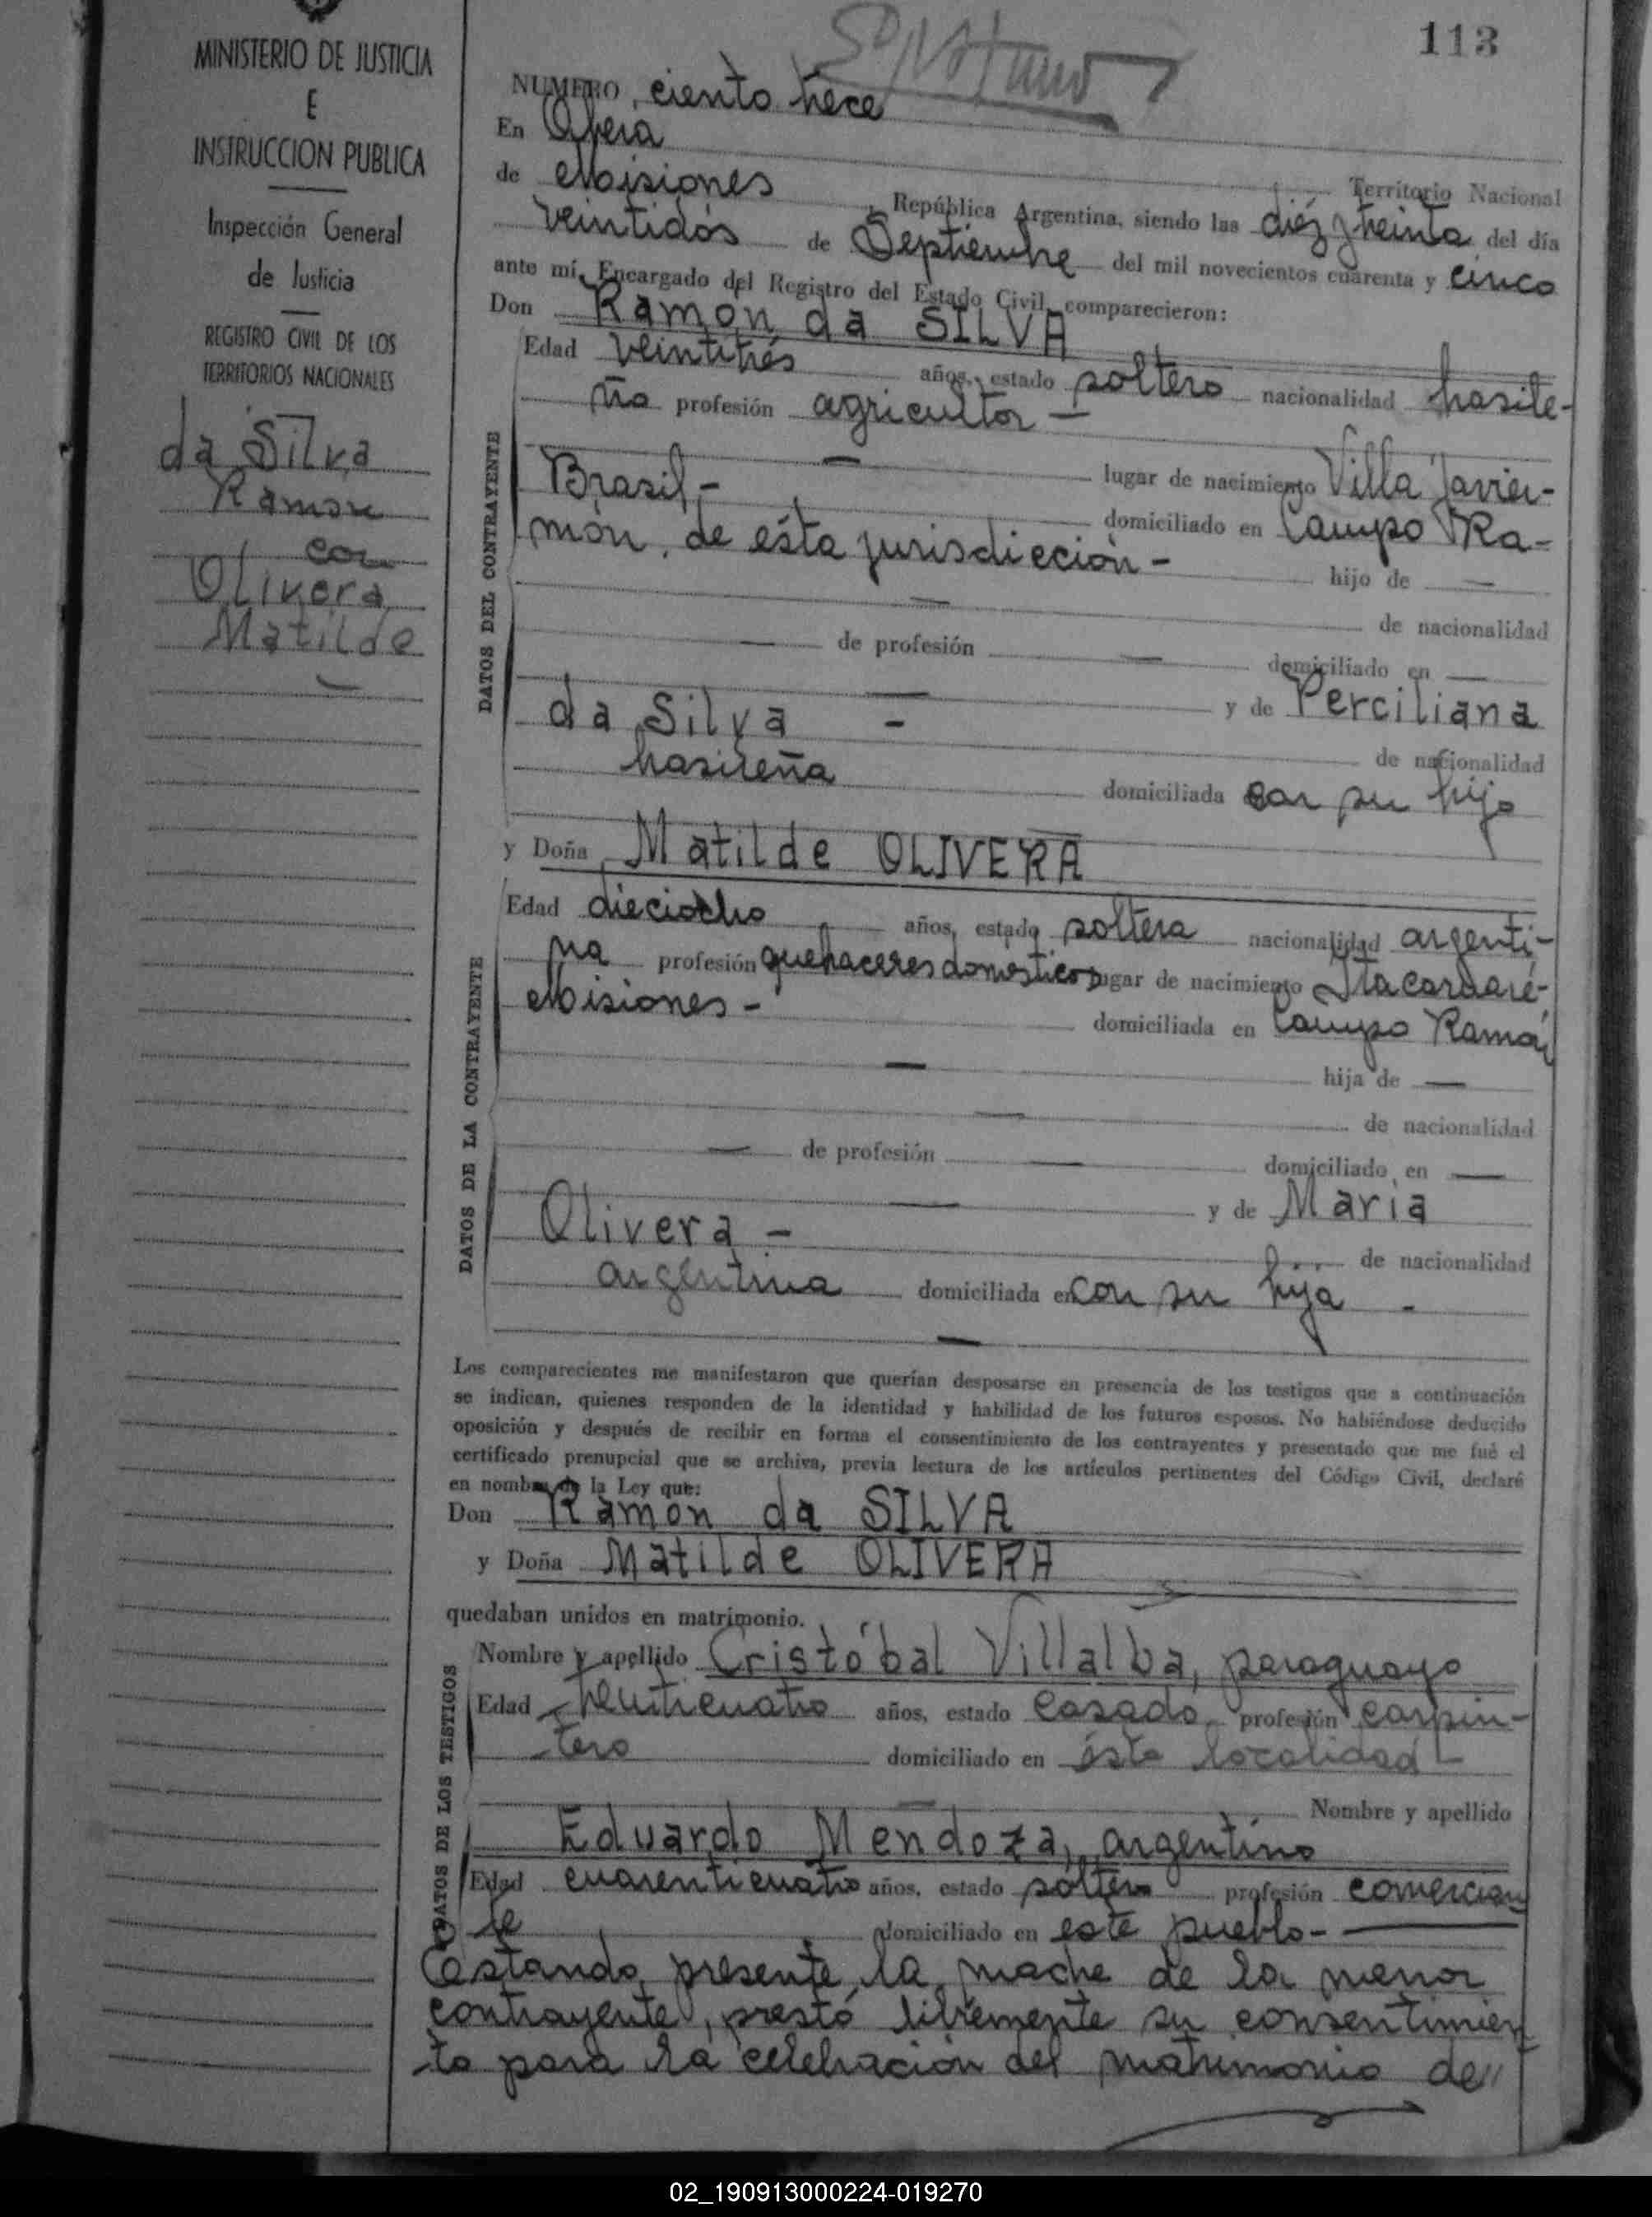 MINISTERIO DE JUSTICIA
E
INSTRUCCION PUBLICA
Inspección General
de Justicia
REGISTRO CIVIL DE LOS
TERRITORIOS NACIONALES
da Silva
Ramon
con
Olivera
Matilde
113
NUMERO ciento trece
En Oberá Territorio Nacional
de Misiones, República Argentina, siendo las diéz y treinta del día
veintidós de Septiembre del mil novecientos cuarenta y cinco
ante mí, Encargado del Registro del Estado Civil, comparecieron:
Don Ramon da SILVA
DATOS DEL CONTRAYENTE
Edad veintitrés años, estado soltero nacionalidad brasile-
ño profesión agricultor —
— lugar de nacimiento Villa Javier-
Brasil,- domiciliado en Campo Ra-
món, de ésta jurisdicción - hijo de —
— de nacionalidad
— de profesión — domiciliado en —
— y de Perciliana
da Silva - de nacionalidad
brasileña domiciliada con su hijo
y Doña Matilde OLIVERA
DATOS DE LA CONTRAYENTE
Edad dieciocho años, estado soltera nacionalidad argenti-
na profesión quehaceres domesticos lugar de nacimiento Itacaruaré-
Misiones - domiciliada en Campo Ramón
— hija de —
— de nacionalidad
— de profesión — domiciliado en —
— y de Maria
Olivera - de nacionalidad
argentina domiciliada en con su hija -
—
Los comparecientes me manifestaron que querían desposarse en presencia de los testigos que a continuación
se indican, quienes responden de la identidad y habilidad de los futuros esposos. No habiéndose deducido
oposición y después de recibir en forma el consentimiento de los contrayentes y presentado que me fué el
certificado prenupcial que se archiva, previa lectura de los artículos pertinentes del Código Civil, declaré
en nombre de la Ley que:
Don Ramon da SILVA
y Doña Matilde OLIVERA
quedaban unidos en matrimonio.
DATOS DE LOS TESTIGOS
Nombre y apellido Cristóbal Villalba, paraguayo
Edad treinticuatro años, estado casado, profesión carpin-
tero domiciliado en ésta localidad -
— Nombre y apellido
Eduardo Mendoza, argentino
Edad cuarenticuatro años, estado soltero profesión comercian
te domiciliado en este pueblo- —
Estando presente la madre de la menor
contrayente, prestó libremente su consentimien
to para la celebración del matrimonio de//
02_190913000224-019270